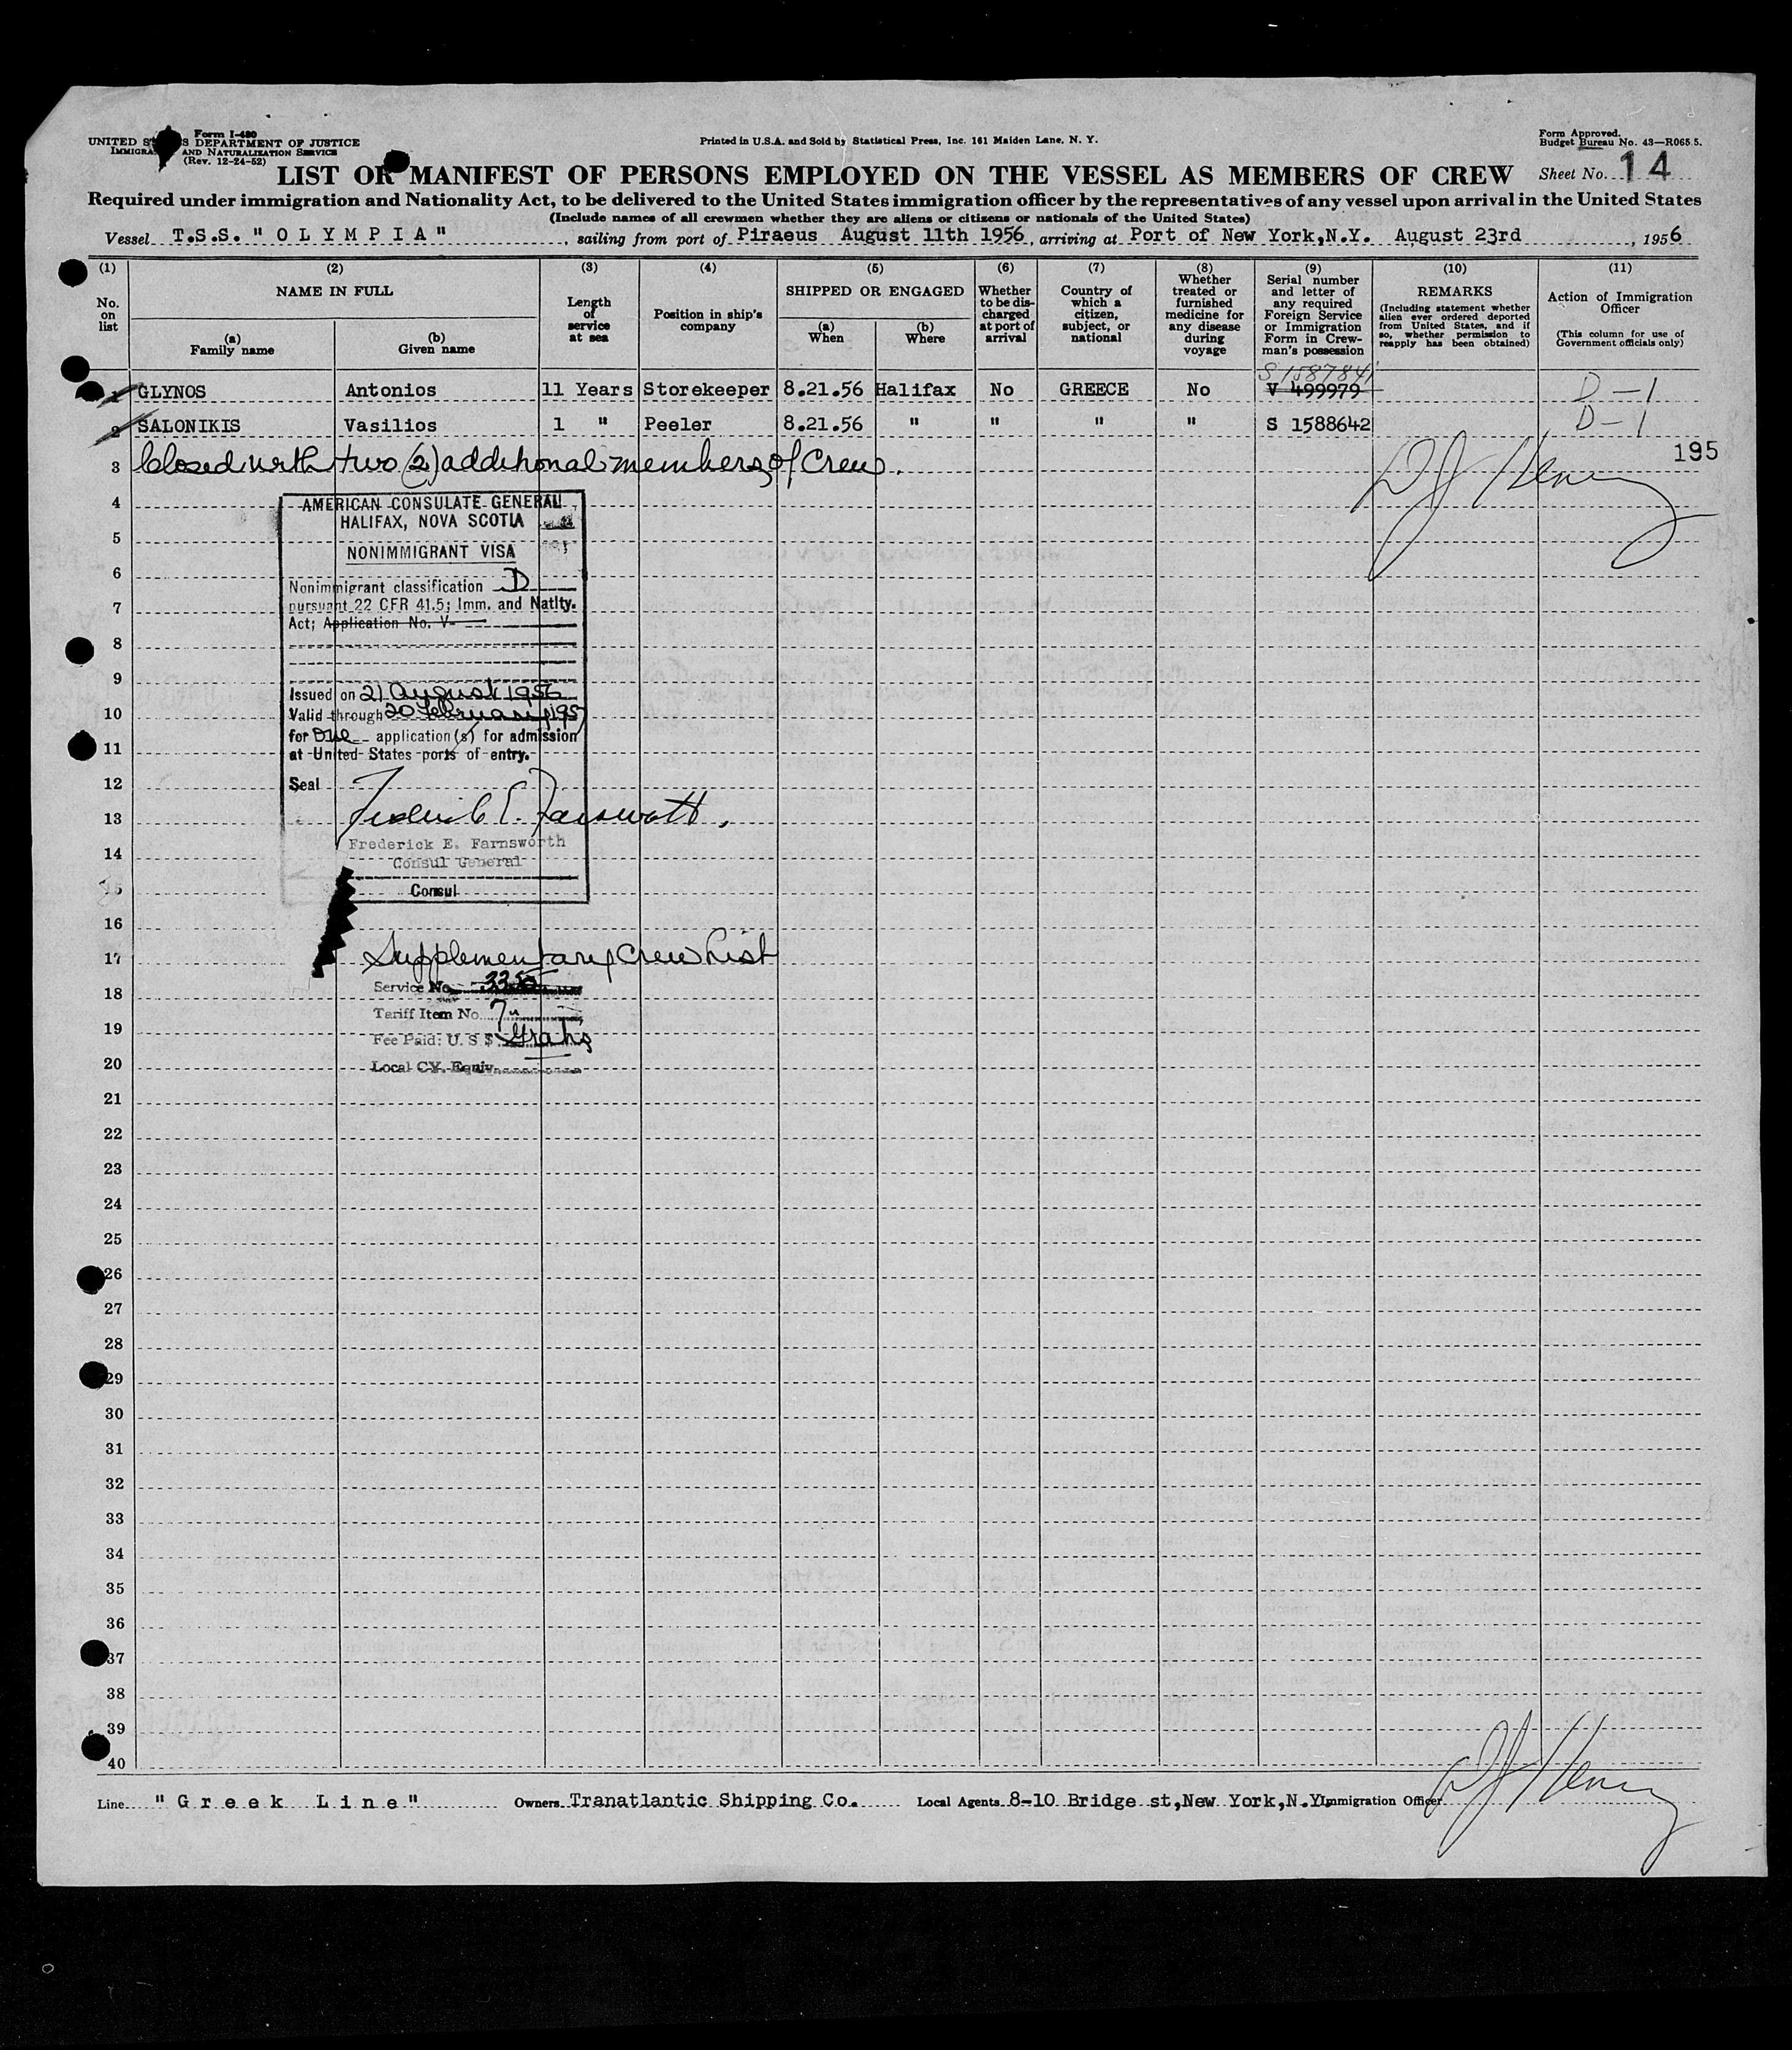 Form I-480
UNITED S S DEPARTMENT OF JUSTICE
IMMIGRA AND NATURALIZATION SERVICE
(Rev. 12-24-52)
Printed in U.S.A. and Sold by Statistical Press, Inc. 161 Maiden Lane, N. Y.
Form Approved.
Budget Bureau No. 43—R065.5.
LIST OR MANIFEST OF PERSONS EMPLOYED ON THE VESSEL AS MEMBERS OF CREW
Sheet No. 14
Required under immigration and Nationality Act, to be delivered to the United States immigration officer by the representatives of any vessel upon arrival in the United States
(Include names of all crewmen whether they are aliens or citizens or nationals of the United States)
Vessel T.S.S. "OLYMPIA", sailing from port of Piraeus August 11th 1956, arriving at Port of New York,N.Y. August 23rd, 1956
(1) (2) (3) (4) (5) (6) (7) (8) (9) (10) (11)
No. on list
NAME IN FULL
(a) Family name
(b) Given name
Length of service at sea
Position in ship's company
SHIPPED OR ENGAGED
(a) When
(b) Where
Whether to be discharged at port of arrival
Country of which a citizen, subject, or national
Whether treated or furnished medicine for any disease during voyage
Serial number and letter of any required Foreign Service or Immigration Form in Crewman's possession
REMARKS
(Including statement whether alien ever ordered deported from United States, and if so, whether permission to reapply has been obtained)
Action of Immigration Officer
(This column for use of Government officials only)
S 1587841
1 GLYNOS Antonios 11 Years Storekeeper 8.21.56 Halifax No GREECE No V 499979 D-1
2 SALONIKIS Vasilios 1 " Peeler 8.21.56 " " " " S 1588642 D-1
3 Closed with two (2) additional members of Crew.
195
DJ Henry
4
AMERICAN CONSULATE GENERAL
HALIFAX, NOVA SCOTIA
5
NONIMMIGRANT VISA
6
Nonimmigrant classification D
7
pursuant 22 CFR 41.5; Imm. and Natlty.
Act; Application No. V-
8
9
Issued on 21 August 1956
10
Valid through 20 February 1957
for One application(s) for admission
11
at United States ports of entry.
12
Seal
13
Frederick E. Farnsworth
Frederick E. Farnsworth
14
Consul General
15
Consul
16
17
Supplementary Crew List
Service No. 3350
18
Tariff Item No. 7
19
Fee Paid: U. S $ Gratis
20
Local CY. Equiv.
21
22
23
24
25
26
27
28
29
30
31
32
33
34
35
36
37
38
39
40
Line "Greek Line" Owners Tranatlantic Shipping Co. Local Agents 8-10 Bridge st,New York,N.Y. Immigration Officer DJ Henry